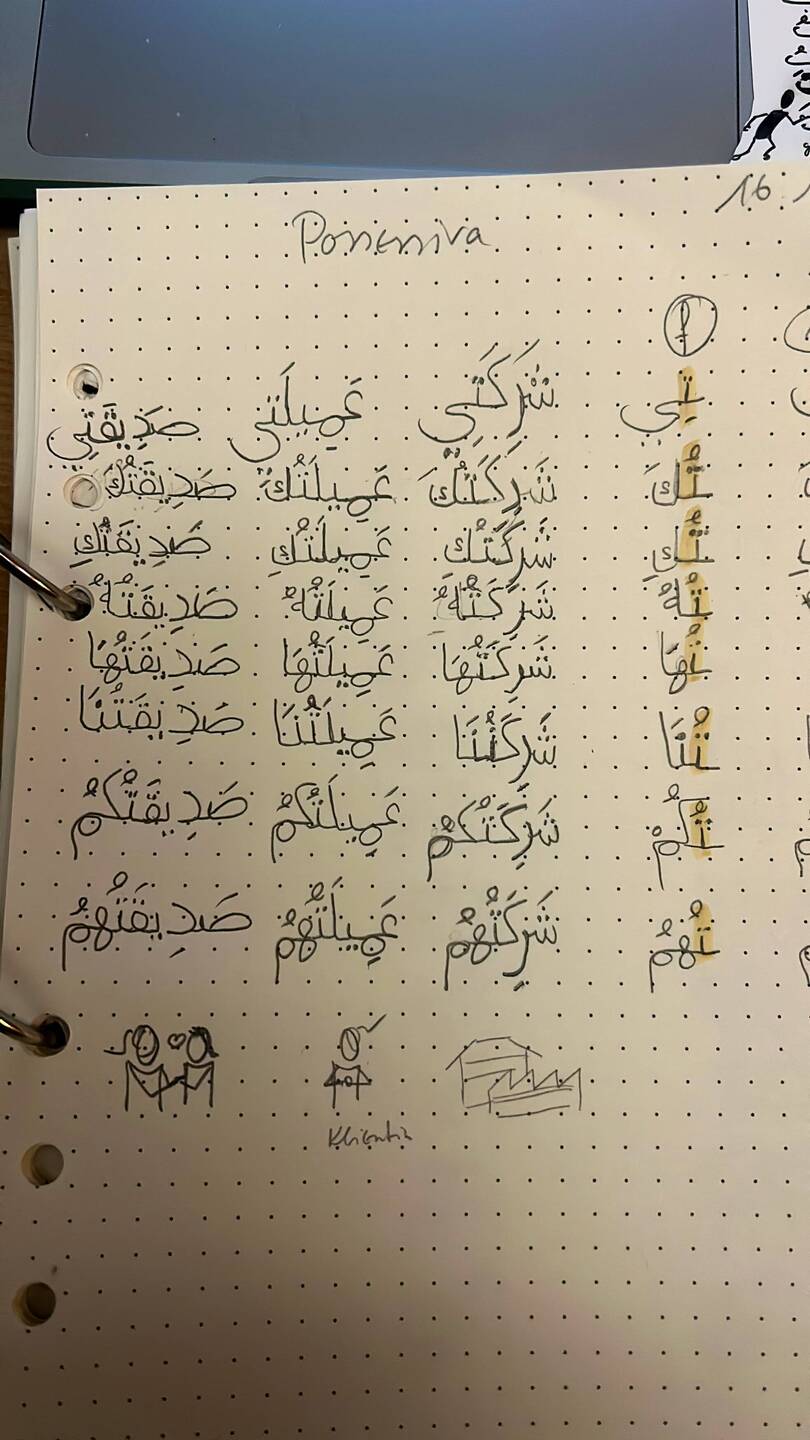 16
Possessiva
f
تِي شَرِكَتِي عَمِيلَتي صَدِيقَتِي
تُكَ شَرِكَتُكَ عَمِيلَتُكَ صَدِيقَتُكَ
تُكِ شَرِكَتُكِ عَمِيلَتُكِ صَدِيقَتُكِ
تُهُ شَرِكَتُهُ عَمِيلَتُهُ صَدِيقَتُهُ
تُهَا شَرِكَتُهَا عَمِيلَتُهَا صَدِيقَتُهَا
تُنَا شَرِكَتُنَا عَمِيلَتُنَا صَدِيقَتُنَا
تُكُمْ شَرِكَتُكُمْ عَمِيلَتُكُمْ صَدِيقَتُكُمْ
تُهُم شَرِكَتُهُم عَمِيلَتُهُم صَدِيقَتُهُم
Klientin